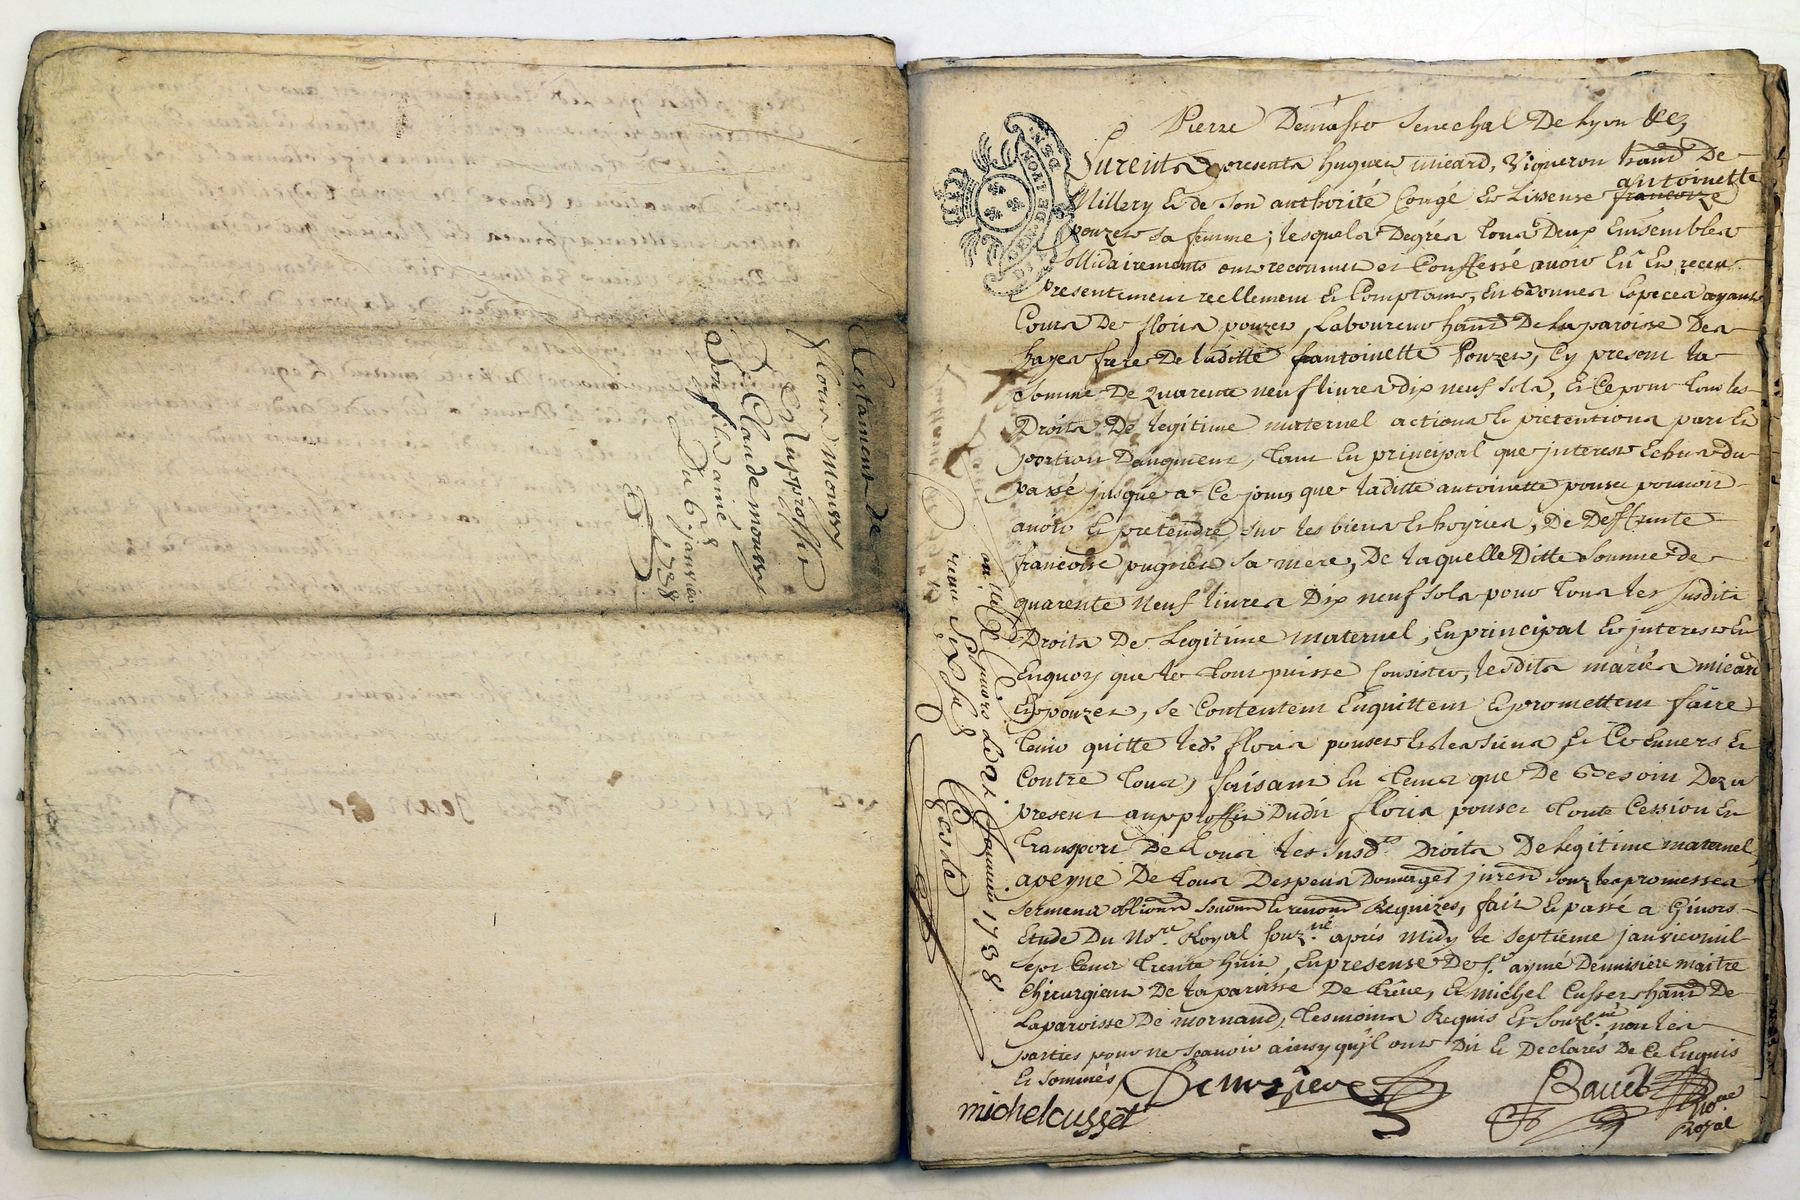 Testament de
floris moussy
Au proffit
De Claude moussy
Son fils ainé
Du 6e janvier
1738
Pierre Demasso Senechal De Lyon &c
Furent presents hugues micard, Vigneron habt De
Millery et de Son authorité Congé et Lissense francoize antoinette
pouzet sa femme; lesquels Degrés tous Deux Ensembles
Sollidairements ont reconnut et Conffessé avoir Eu et receu
presentement reellement et Comptant, en Bonnes Especes ayants
Cours De floris pouzet, Laboureur habt De La paroisse Des
hayes frere De laditte antoinette Pouzet, Cy present la
Somme De Quarente neuf livres dix neuf sols, et Ce pour tous les
Droits De legitime maternel actions et pretentions part et
portion D'augment, tant En principal que jnterest Echus du
passé jusque a Ce jour que laditte antoinette pouset pouvoit
avoir et pretendre sur les biens et hoyries, De Deffunte
francoise pugniet sa mere, De laquelle Ditte Somme de
quarente Neuf livres Dix neuf sols pour tous les susdits
Droits De Legitime maternel, En principal et jnterest En
Enquoy que le tout puisse Consister, lesdits mariés micard
et pouzet, se Contentent Enquittent Et promettent faire
tenir quitte led. floris pouset et les siens Et Ce Envers Et
Contre tous, faisant En tems que De Besoin Deza
present auproffit Dudit floris pouset toute Cession Et
transport De tous les susd. Droits De legitime maternel,
apeyne De tous Despens Domages jnterest sous les promesses
serments obligaons soumons et renons Requizes, fait Et passé a Givors
Etude Du Nore Royal souzné après midy le septieme janvier mil
sept Cent trente huit, En presense De sr aymé Demisiere maitre
Chirurgien De la paroisse De trêve, Et michel Cusset habt De
La paroisse De mornand, tesmoins Requis Et souzné, non les
parties pour ne scavoir ainsy quil ont Dit Et Declarés De Ce Enquis
Et sommés
Demiziere
Bauel
michel cusset
Nore
Royal
a Givors Le 21 janvier 1738
receu Six sols
Gasde